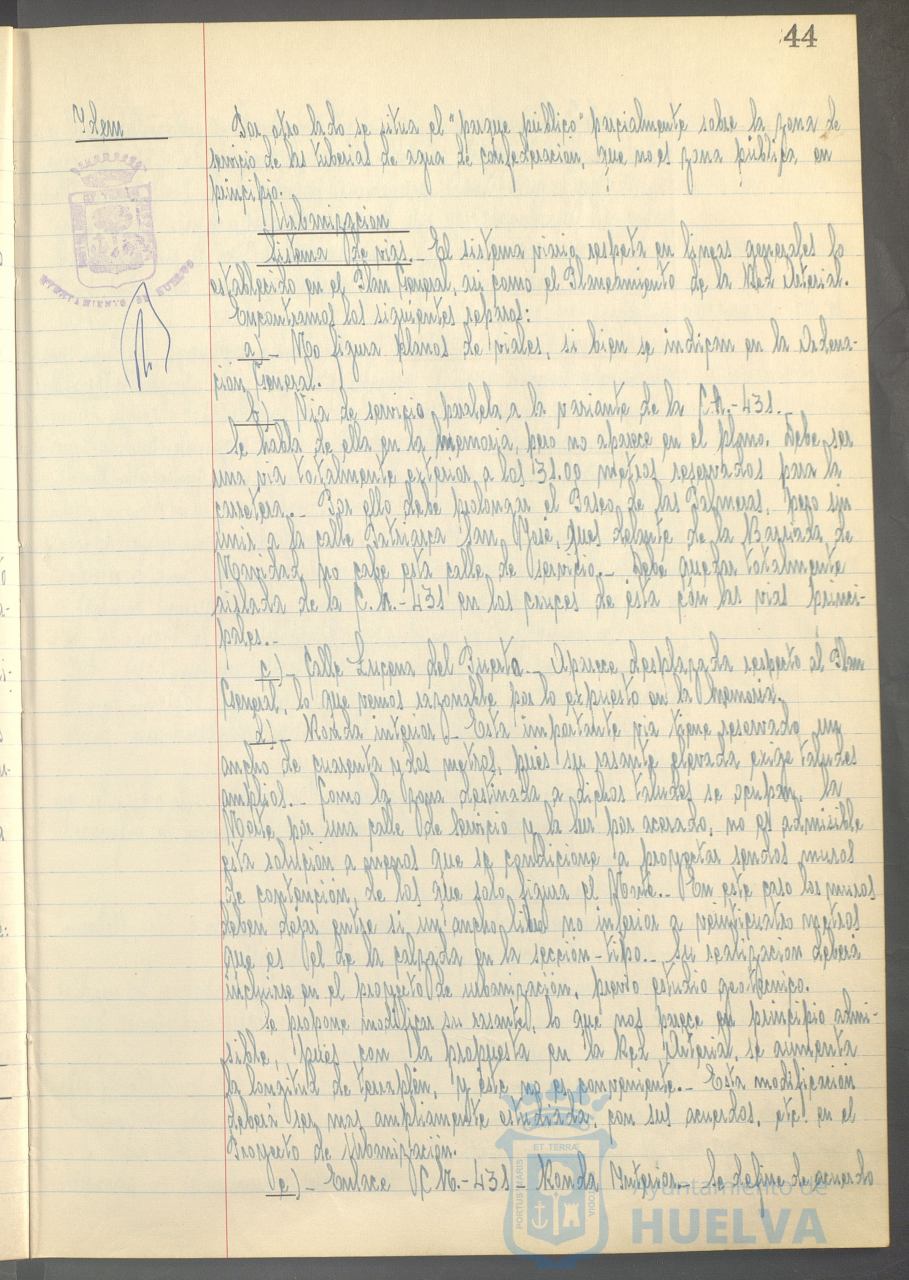 44
Idem
Por otro lado se situa el "parque público" parcialmente sobre la zona de
servicio de las tuberias de agua de confederacion, que no es zona pública en
principio.
Urbanización
Sistema de vias.- El sistema viario respeta en lineas generales lo
establecido en el Plan General, asi como el Planeamiento de la Red Arterial.
Encontramos los siguientes reparos:
a)- No figura planos de viales, si bien se indican en la Ordena-
ción General.
b)- Via de servicio paralela a la variante de la C.N.-431.
Se habla de ella en la memoria, pero no aparece en el plano. Debe ser
una via totalmente exterior a los 131.00 metros reservados para la
carretera.- Por ello debe prolongar el Paseo de las Palmeras, pero sin
unir a la calle Patriarca San José, pues delante de la Barriada de
Navidad no cabe esta calle de servicio.- Debe quedar totalmente
aislada de la C.N.-431 en los cruces de esta con las vias princi-
pales.-
c)- Calle Lucena del Puerto.- Aparece desplazada respecto al Plan
General, lo que vemos razonable por lo expuesto en la Memoria.
d)- Ronda interior.- Esta importante via tiene reservado un
ancho de cuarenta y dos metros, pues su rasante elevada exige taludes
amplios.- Como la zona destinada a dichos taludes se ocupan, la
Norte por una calle de Servicio y la Sur por acerado, no es admisible
esta solución a menos que se condicione a proyectar sendos muros
de contención, de los que solo figura el Norte.- En este caso los muros
deben dejar entre si un ancho libre no inferior a veinticuatro metros
que es el de la calzada en la sección-tipo.- Su realización deberá
incluirse en el proyecto de urbanización, previo estudio geotecnico.
Se propone modificar su rasante, lo que nos parece en principio admi-
sible, pues con la propuesta en la Red Arterial, se aumenta
la longitud de terraplén, y éste no es conveniente.- Esta modificación
deberá ser mas ampliamente estudiada, con sus acuerdos, etc. en el
Proyecto de Urbanización.
e)- Enlace C.N.-431 Ronda Interior.- Se define de acuerdo
AYUNTAMIENTO DE HUELVA
PORTUS MARIS ET TERRAE CUSTODIA
Ayuntamiento de
HUELVA